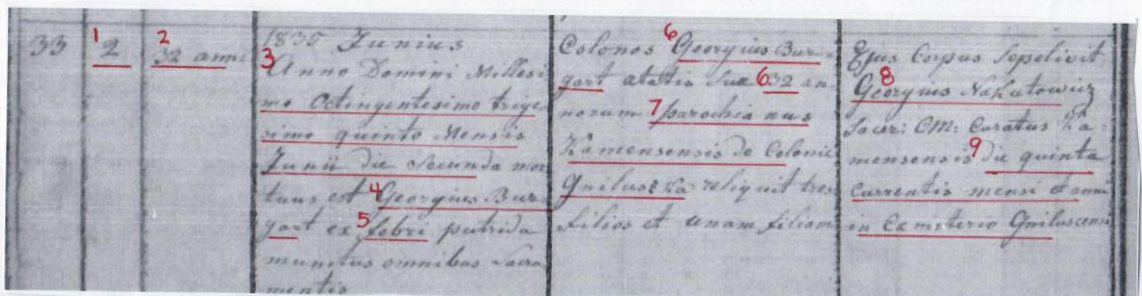 33
1
2
2
32 anni
1835 Junius
3
Anno Domini Millesi
mo octingentesimo trige
simo quinto Mensis
Junii die Secunda mor
tuus est 4 Georgius Bur-
gart ex 5 febri putrida
munitus omnibus Sacra
mentis
Colonos 6 Georgius Bur-
gart ætatis Suæ 6 32 an-
norum 7 parochia nus
Kamensensis de Colonie
Gniluszka reliquit tres
filios et unam filiam
Ejus Corpus Sepelivit
8
Georgius Nakutowicz
Sacer: CM: Curatus Ka-
mensensis 9 die quinta
currentis mensi et anni
in Cæmiterio Gniluscensi